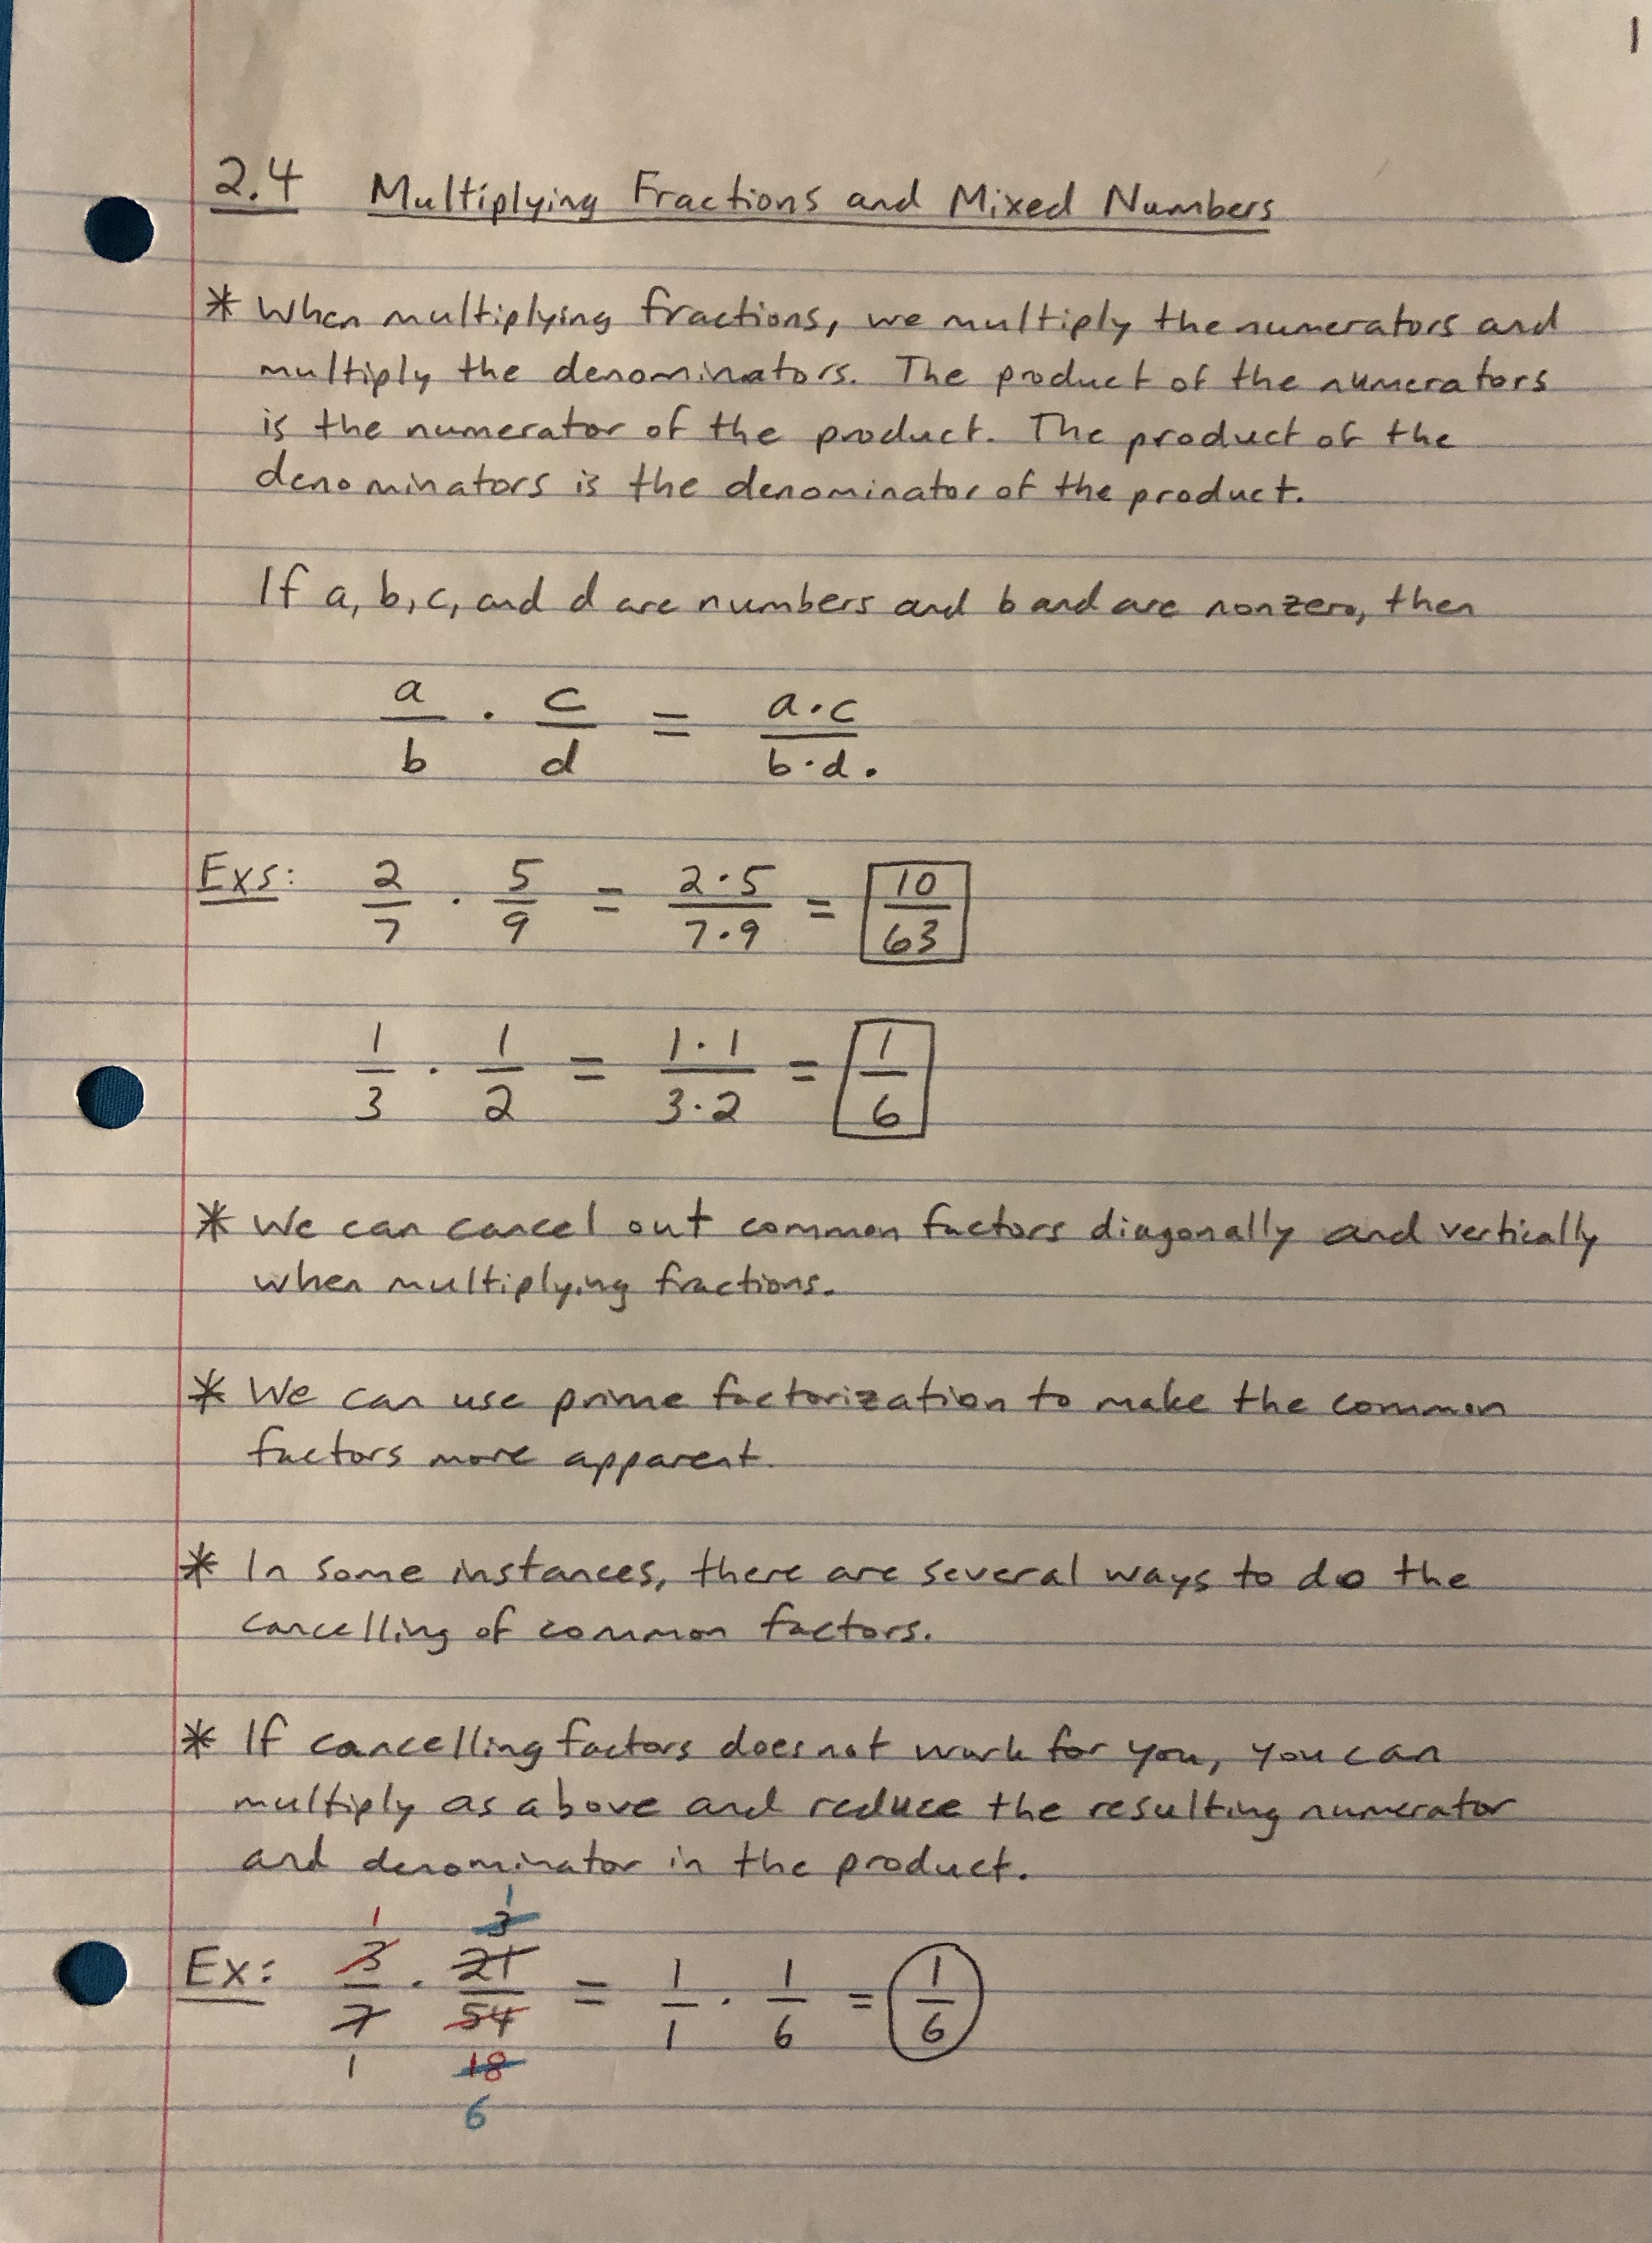 1
2.4 Multiplying Fractions and Mixed Numbers
* When multiplying fractions, we multiply the numerators and
multiply the denominators. The product of the numerators
is the numerator of the product. The product of the
denominators is the denominator of the product.
If a, b, c, and d are numbers and b and are nonzero, then
a/b · c/d = a·c/b·d.
Exs: 2/7 · 5/9 = 2·5/7·9 = 10/63
1/3 · 1/2 = 1·1/3·2 = 1/6
* We can cancel out common factors diagonally and vertically
when multiplying fractions.
* We can use prime factorization to make the common
factors more apparent.
* In some instances, there are several ways to do the
cancelling of common factors.
* If cancelling factors does not work for you, you can
multiply as above and reduce the resulting numerator
and denominator in the product.
1 1
3
Ex: 3/7 · 21/54 = 1/1 · 1/6 = 1/6
1 18
6